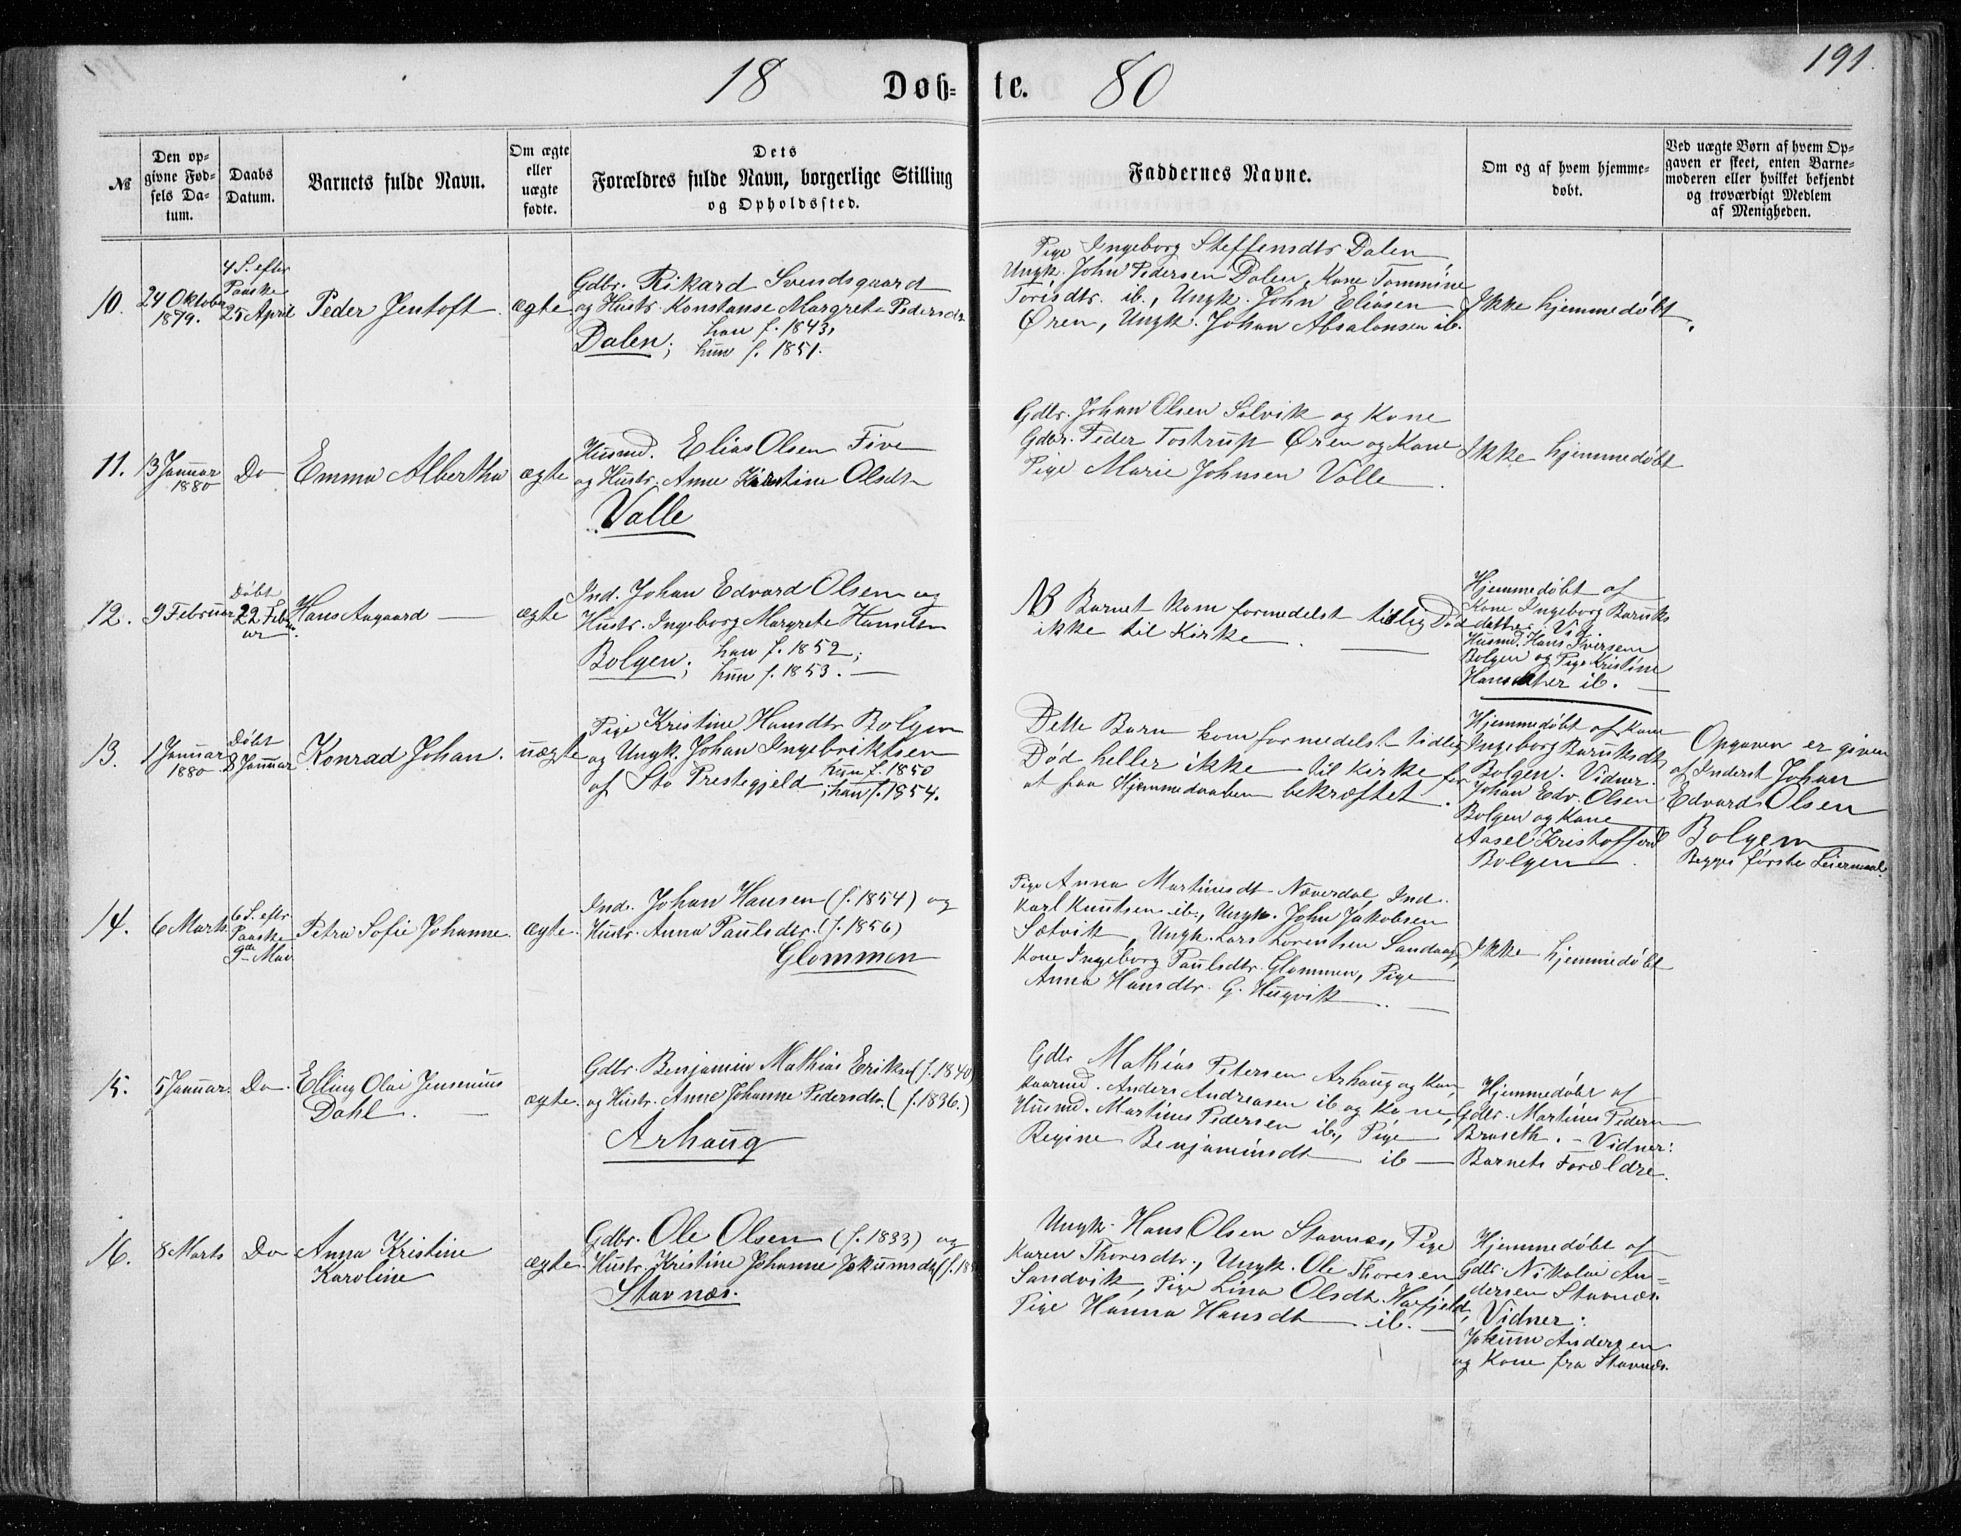 191.
18 Døb- te. 80
№
Den op-
givne Fød-
sels Da-
tum.
Daabs
Datum.
Barnets fulde Navn.
Om ægte
eller
uægte
fødte.
Dets
Forældres fulde Navn, borgerlige Stilling
og Opholdssted.
Faddernes Navne.
Om og af hvem hjemme-
døbt.
Ved uægte Børn af hvem Op-
gaven er skeet, enten Barne-
moderen eller hvilket bekjendt
og troværdigt Medlem
af Menigheden.
10.
24 Oktober
1879.
4 S. efter
Paaske
25 April
Peder Jentoft.
ægte
Gdbr. Rikard Svendsgaard
og Hustr. Konstanse Margrete Pedersdr
Dalen; han f. 1843,
hun f. 1851.
Pige Ingeborg Steffensdtr Dalen,
Ungk. John Pedersen Dalen, Kone Tommine
Torisdtr. ib., Ungk. John Eliasen
Øren, Ungk. Johan Absalonsen ib.
Ikke hjemmedøbt.
11.
13 Januar
1880
Do
Emma Albertha
ægte
Husmd. Elias Olsen Five
og Hustr. Anne Kirstine Olsdtr
Valle
Gdbr. Johan Olsen Selvik og Kone
Gdbr. Peder Tostrup Øren og Kone
Pige Marie Johnsen Valle.
Ikke hjemmedøbt
12.
9 Februar
Døbt
22 Febru-
ar
Hans Aagaard
ægte
Ind. Johan Edvard Olsen og
Hustr. Ingeborg Margrete Hansdtr
Bolgen; han f. 1852;
hun f. 1853.
NB Barnet kom formedelst tidlig Død
ikke til Kirke.
Hjemmedøbt af
Kone Ingeborg Baruks
datter. Vid.
Husmd. Hans Iversen
Bolgen og Pige Kristine
Hansdatter ib.
13.
1 Januar
1880
Døbt
8 Januar
Konrad Johan.
uægte
Pige Kristine Hansdtr Bolgen
og Ungk. Johan Ingebriktsen
af Stø Prestegjeld hun f. 1850
; han f. 1854.
Dette Barn kom formedelst tidlig
Død heller ikke til Kirke for
at faa Hjemmedaaben bekræftet.
Hjemmedøbt af Kone
Ingeborg Baruksdtr
Bolgen. Vidner.
Johan Edv. Olsen
Bolgen og Kone
Aasel Kristoffersd
Bolgen.
Opgaven er given
af Inderst Johan
Edvard Olsen
Bolgen
Begges første Leiermaal.
14.
6 Marts
6 S. eftr
Paaske
9de Mai
Petra Sofie Johanne
ægte.
Ind. Johan Hansen (f. 1854) og
Hustr. Anna Paulsdtr. (f. 1856)
Glommen
Pige Anna Martinusdt Næverdal, Ind.
Karl Knutsen ib., Ungk. John Jakobsen
Sætvik, Ungk. Lars Lorentsen Sandaag,
Kone Ingeborg Paulsdtr. Glommen, Pige
Anna Hansdtr. G. Hugvik.
Ikke hjemmedøbt
15.
5 Januar.
Do.
Elling Olai Jensenius
Dahl.
ægte.
Gdbr. Benjamin Mathias Eriksen (f. 1840)
og Hustr. Anne Johanne Pedersdtr. (f. 1836.)
Arhaug
Gdbr Mathias Petersen Arhaug og Kone,
Kaarmd. Anders Andreasen ib og Kone,
Husmd. Martinus Pedersen ib., Pige
Regine Benjaminsdt ib
Hjemmedøbt af
Gdbr. Martinus Pedersen
Braseth. - Vidner:
Barnets Forældre.
16.
8 Marts
Do
Anna Kristine
Karoline
ægte.
Gdbr. Ole Olsen (f. 1833) og
Hustr. Kristine Johanne Jokumsdtr (f. 18
Stavnæs.
Ungk. Hans Olsen Stavnæs, Pige
Karen Thoresdtr., Ungk. Ole Thoresen
Sandvik, Pige Lina Olsdt. Høgfjeld,
Pige Hanna Hansdt ib.
Hjemmedøbt af
Gdbr. Nikolai An-
dersen Stavnæs.
Vidner:
Jokum Andersen
og Kone fra Stavnæs.